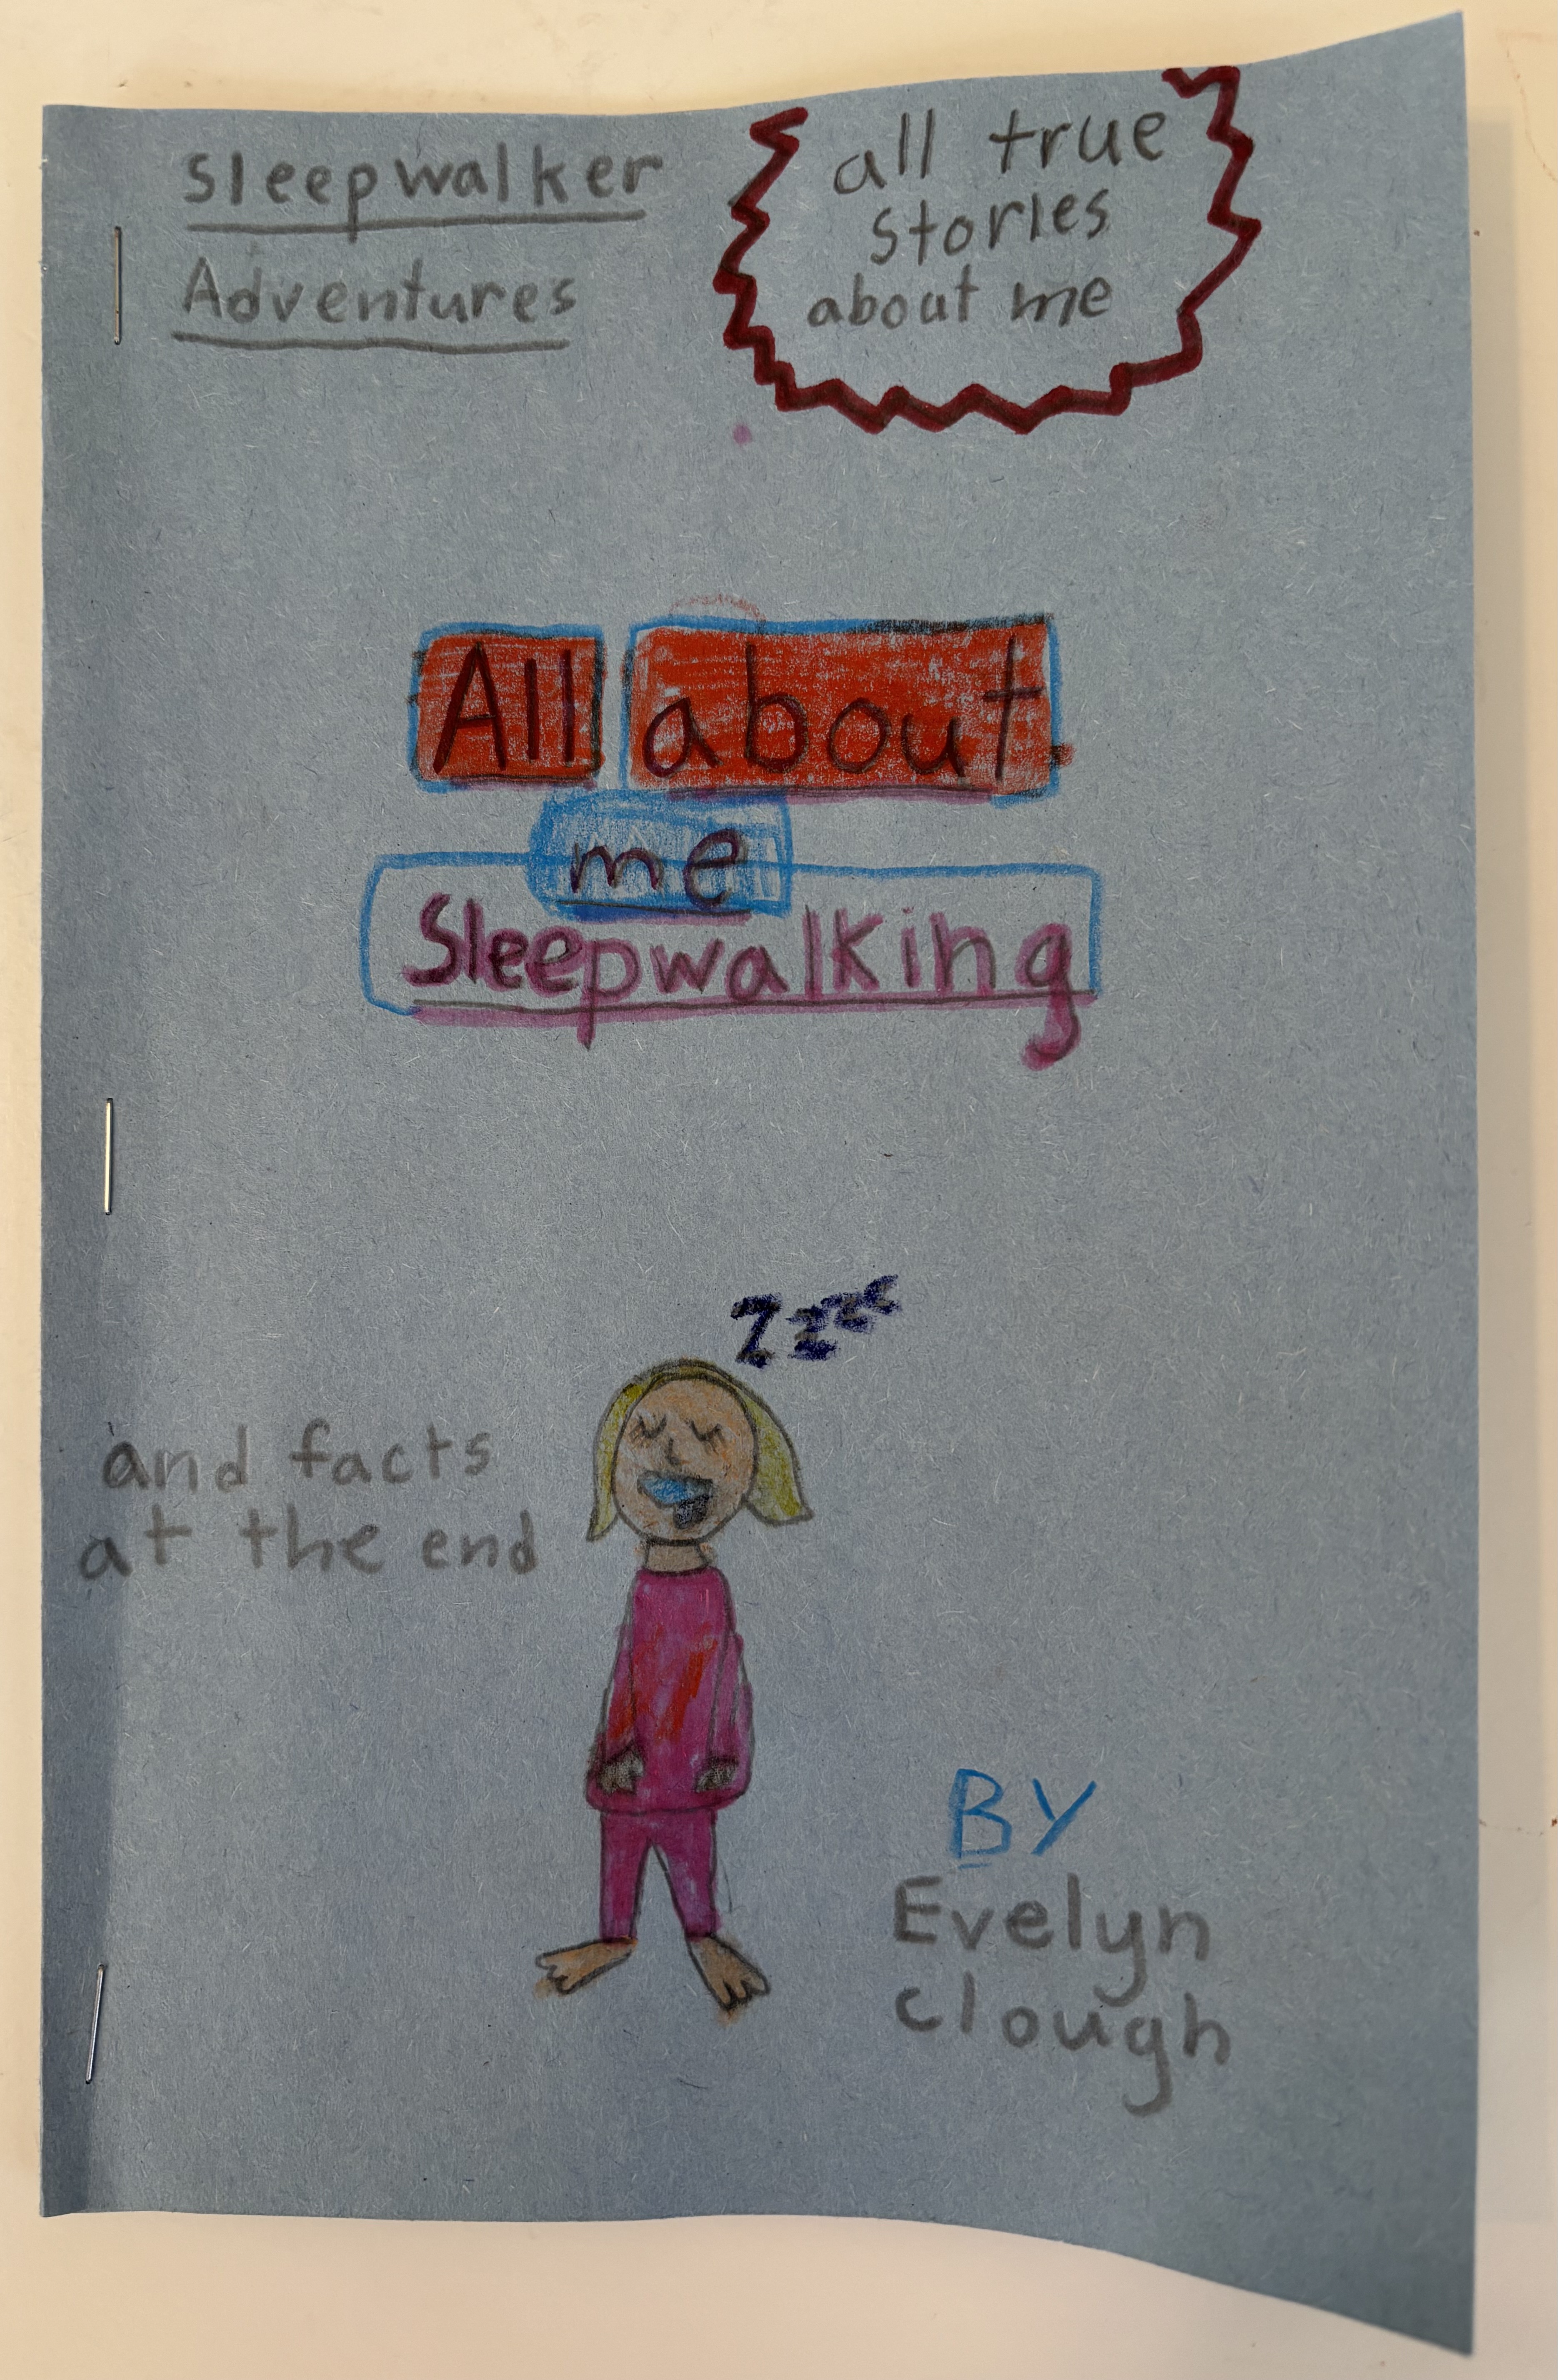 Sleepwalker
Adventures
all true
stories
about me
All about
me
Sleepwalking
Zzzz
and facts
at the end
BY
Evelyn
Clough